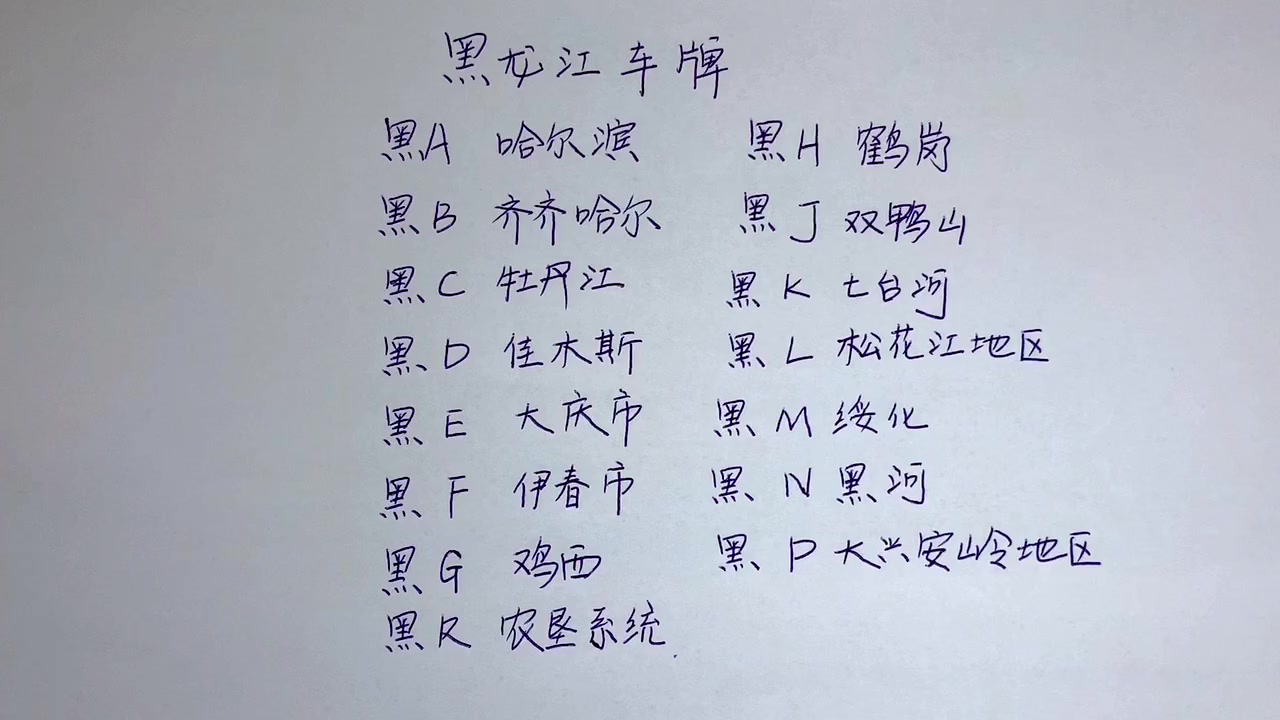 黑龙江车牌
黑A 哈尔滨
黑B 齐齐哈尔
黑C 牡丹江
黑D 佳木斯
黑E 大庆市
黑F 伊春市
黑G 鸡西
黑R 农垦系统
黑H 鹤岗
黑J 双鸭山
黑K 七台河
黑L 松花江地区
黑M 绥化
黑N 黑河
黑P 大兴安岭地区